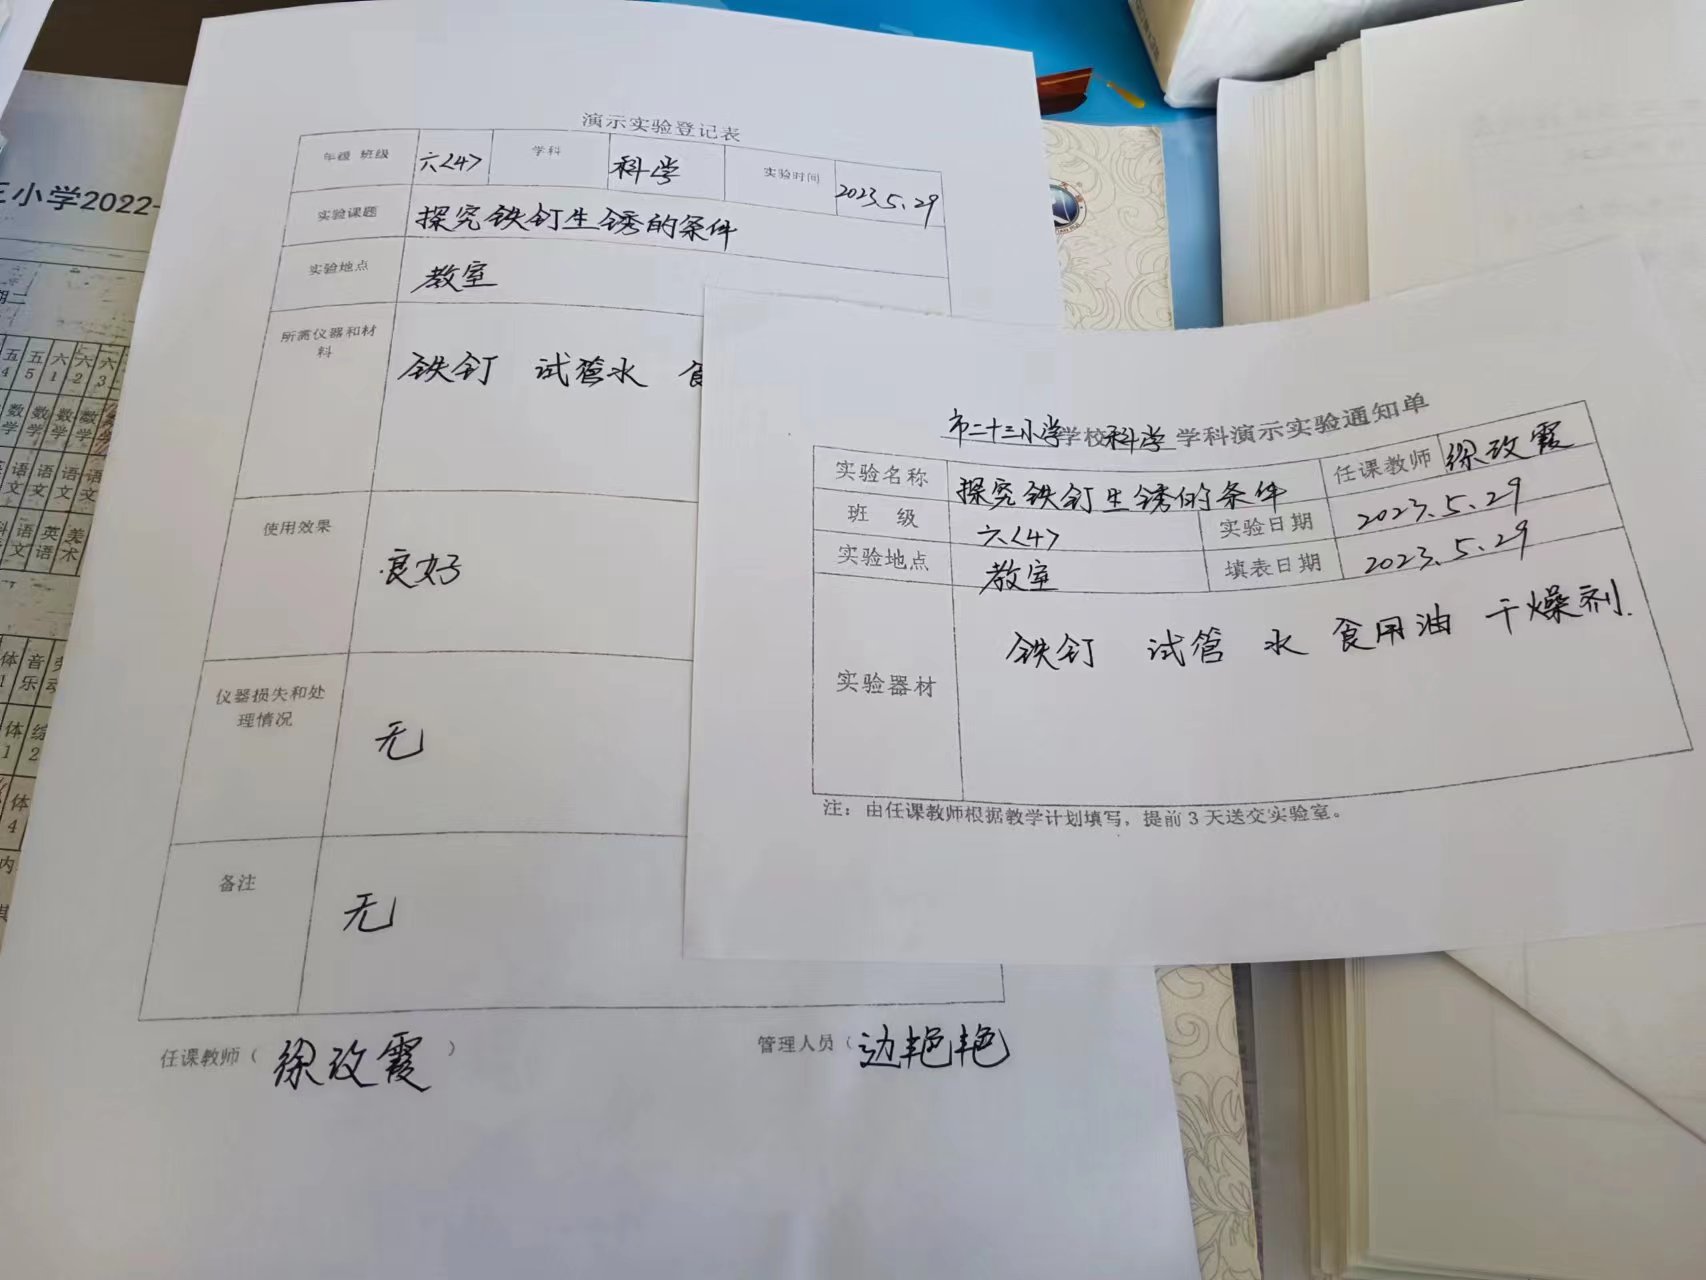 三小学2022-
五 五 六 六 六
4 5 1 2 3
数 数 数 数
学 学 学 学
语 语 语 语
文 文 文 文
语 英 美
文 语 术
体 音
1 乐
体 综
1 2
体
4
内
演示实验登记表
年级 班级 六<4> 学科 科学 实验时间 2023.5.29
实验课题 探究铁钉生锈的条件
实验地点 教室
所需仪器和材
料
铁钉 试管水 食
使用效果 良好
仪器损失和处
理情况
无
备注 无
任课教师( 徐玫霞 ) 管理人员(边艳艳
市二十三小学学校科学学科演示实验通知单
实验名称 探究铁钉生锈的条件 任课教师 徐玫霞
班 级 六<4> 实验日期 2023.5.29
实验地点 教室 填表日期 2023.5.29
实验器材 铁钉 试管 水 食用油 干燥剂.
注: 由任课教师根据教学计划填写, 提前 3 天送交实验室。